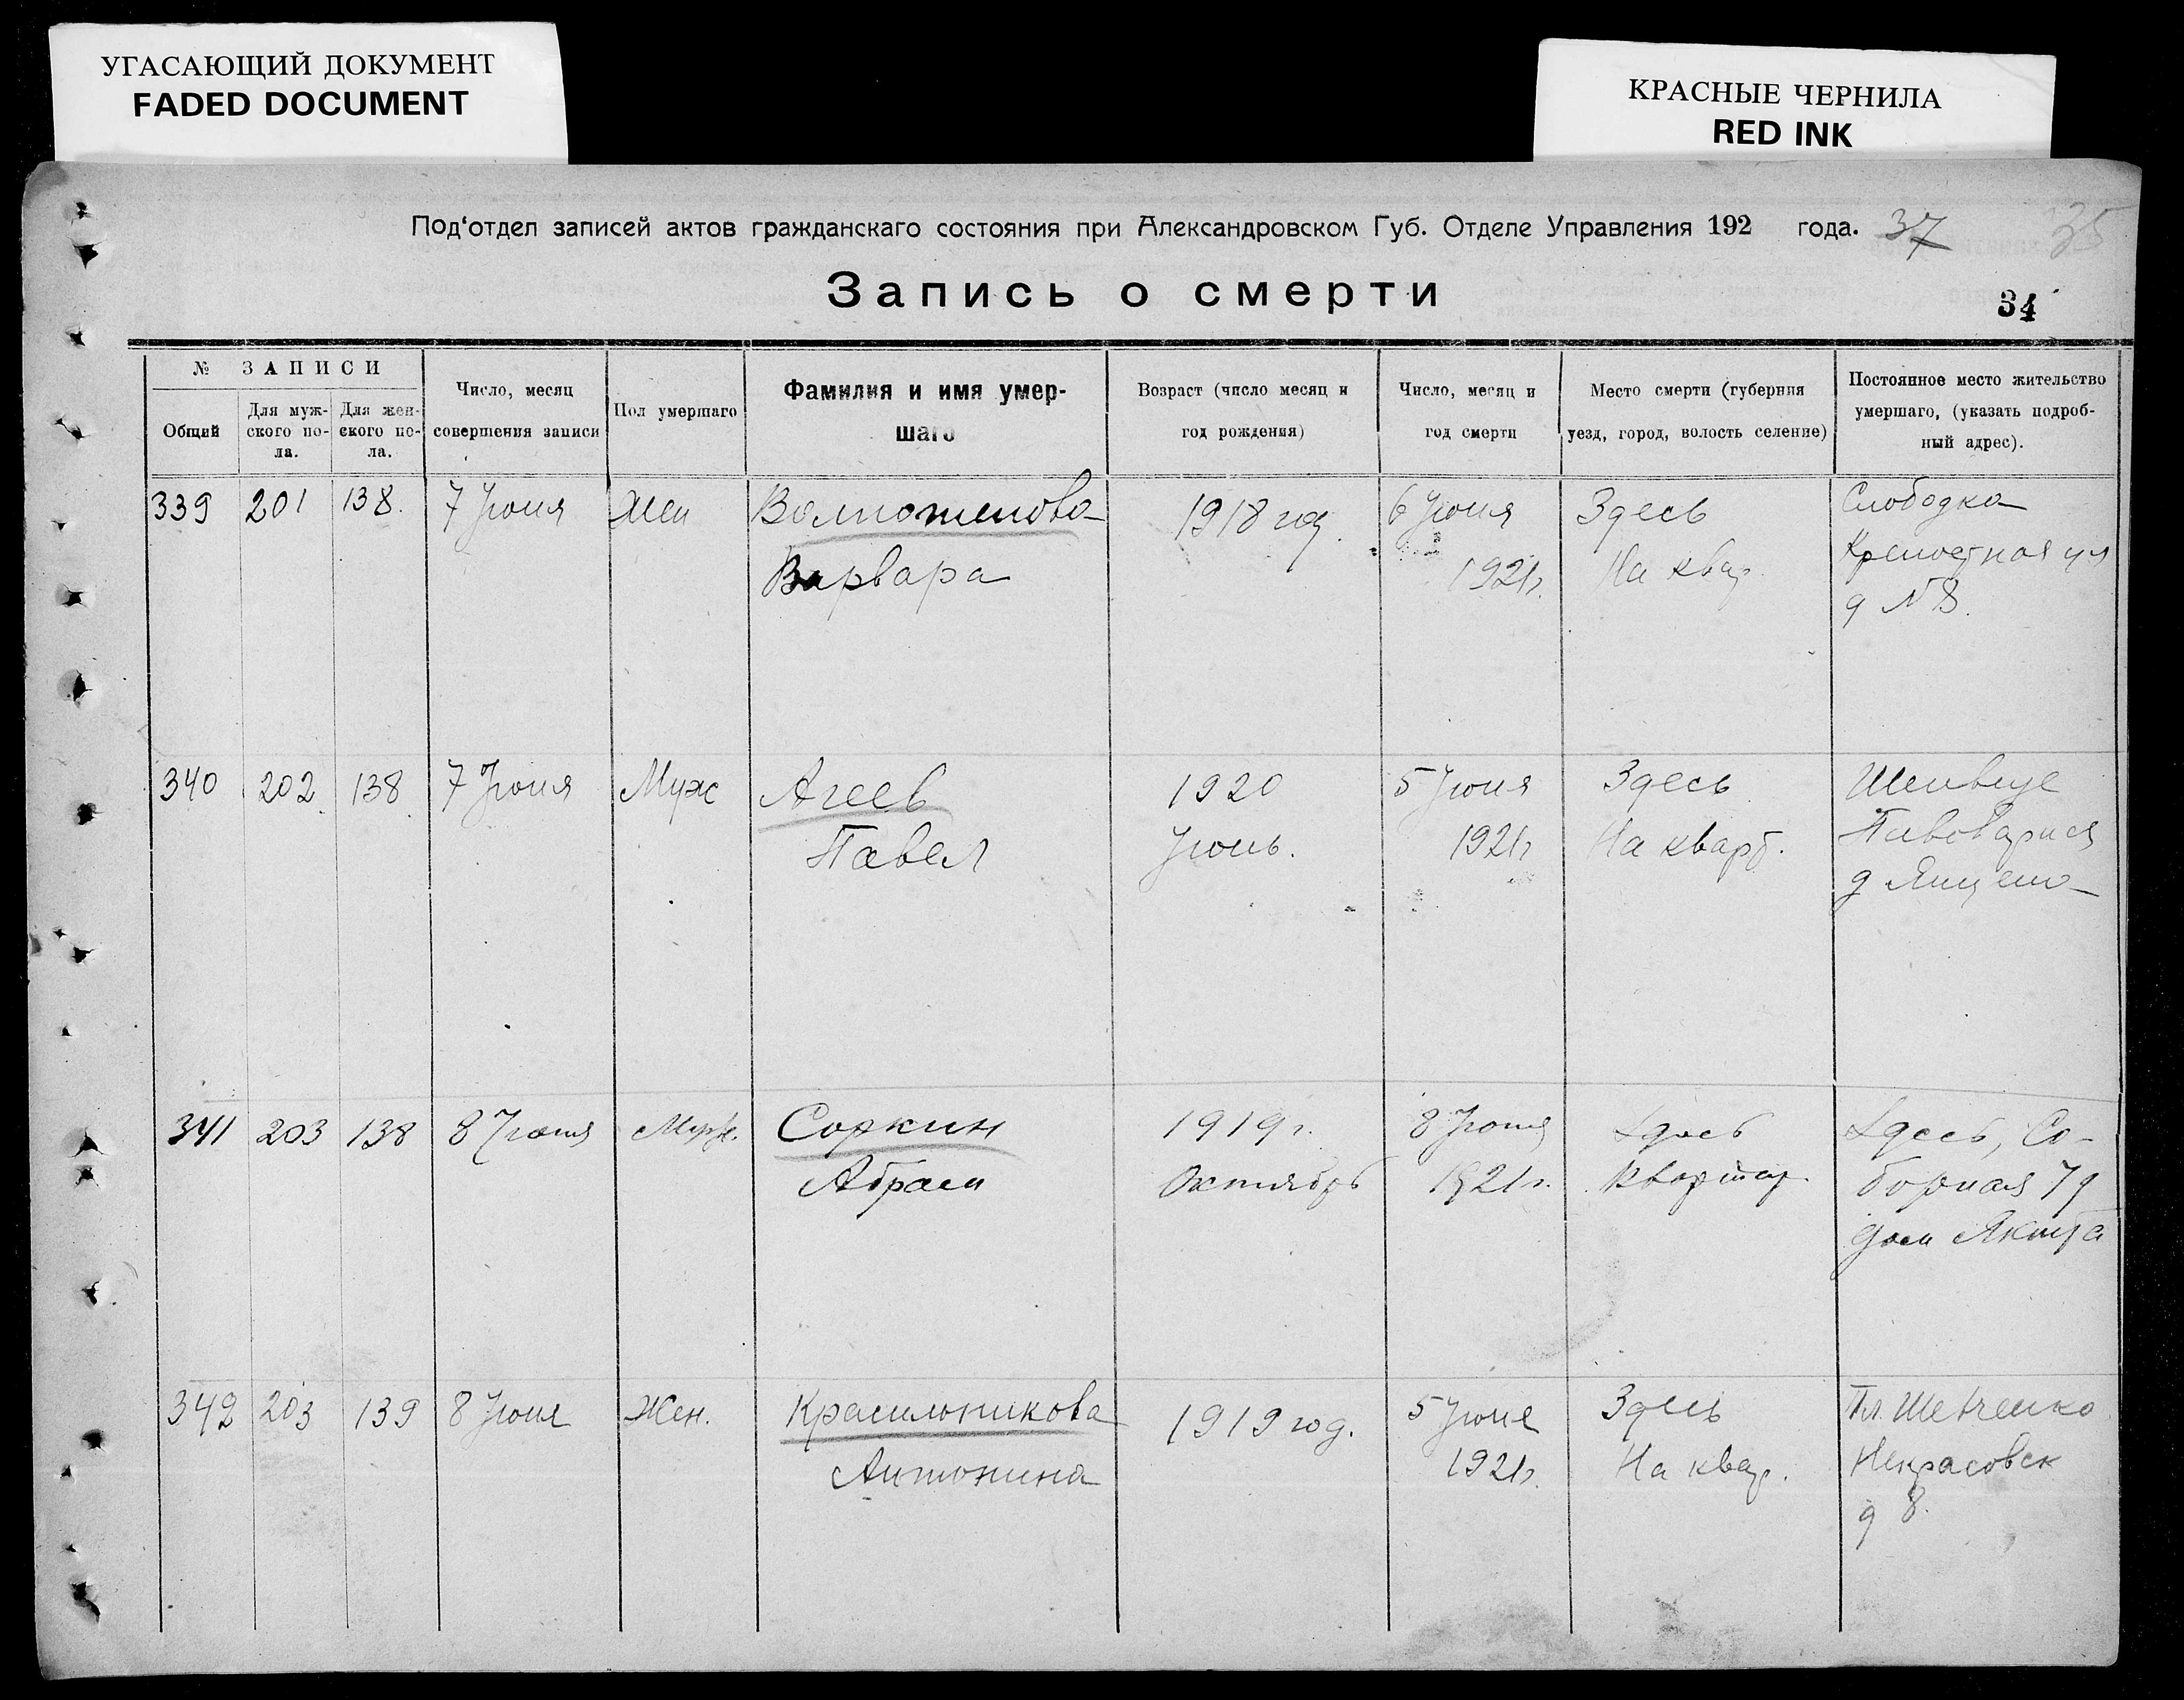 УГАСАЮЩИЙ ДОКУМЕНТ
FADED DOCUMENT
КРАСНЫЕ ЧЕРНИЛА
RED INK
Под‘отдел записей актов гражданскаго состояния при Александровском Губ. Отделе Управления 192 года. 37 35
Запись о смерти
34
№ ЗАПИСИ
Общий
Для муж-
ского по-
ла.
Для жен-
ского по-
ла.
Число, месяц
совершения записи
Пол умершаго
Фамилия и имя умер-
шаго
Возраст (число месяц и
год рождения)
Число, месяц и
год смерти
Место смерти (губерния
уезд, город, волость селение)
Постоянное место жительство
умершаго, (указать подроб-
ный адрес).
339 201 138. 7 Июня Жен
Варвара
1918 год.
6 Июня
1921г.
Здесь
На квар.
Слободка
Крепостная ул
д № 8.
340 202 138 7 Июня Муж
Агеев
Павел
1920
Июнь.
5 Июня
1921г
Здесь
На кварт.
д
341 203 138 8 Июня Муж.
Соркин
Абрам
1919г.
Октябрь
8 Июня
1921г.
Здесь
Квартир.
Здесь, Со-
борная 79
дом
342 203 139 8 Июня Жен.
Красильникова
Антонина
1919 год.
5 Июня
1921г.
Здесь
На квар.
Пл. Шевченко
Некрасовск
д 8.